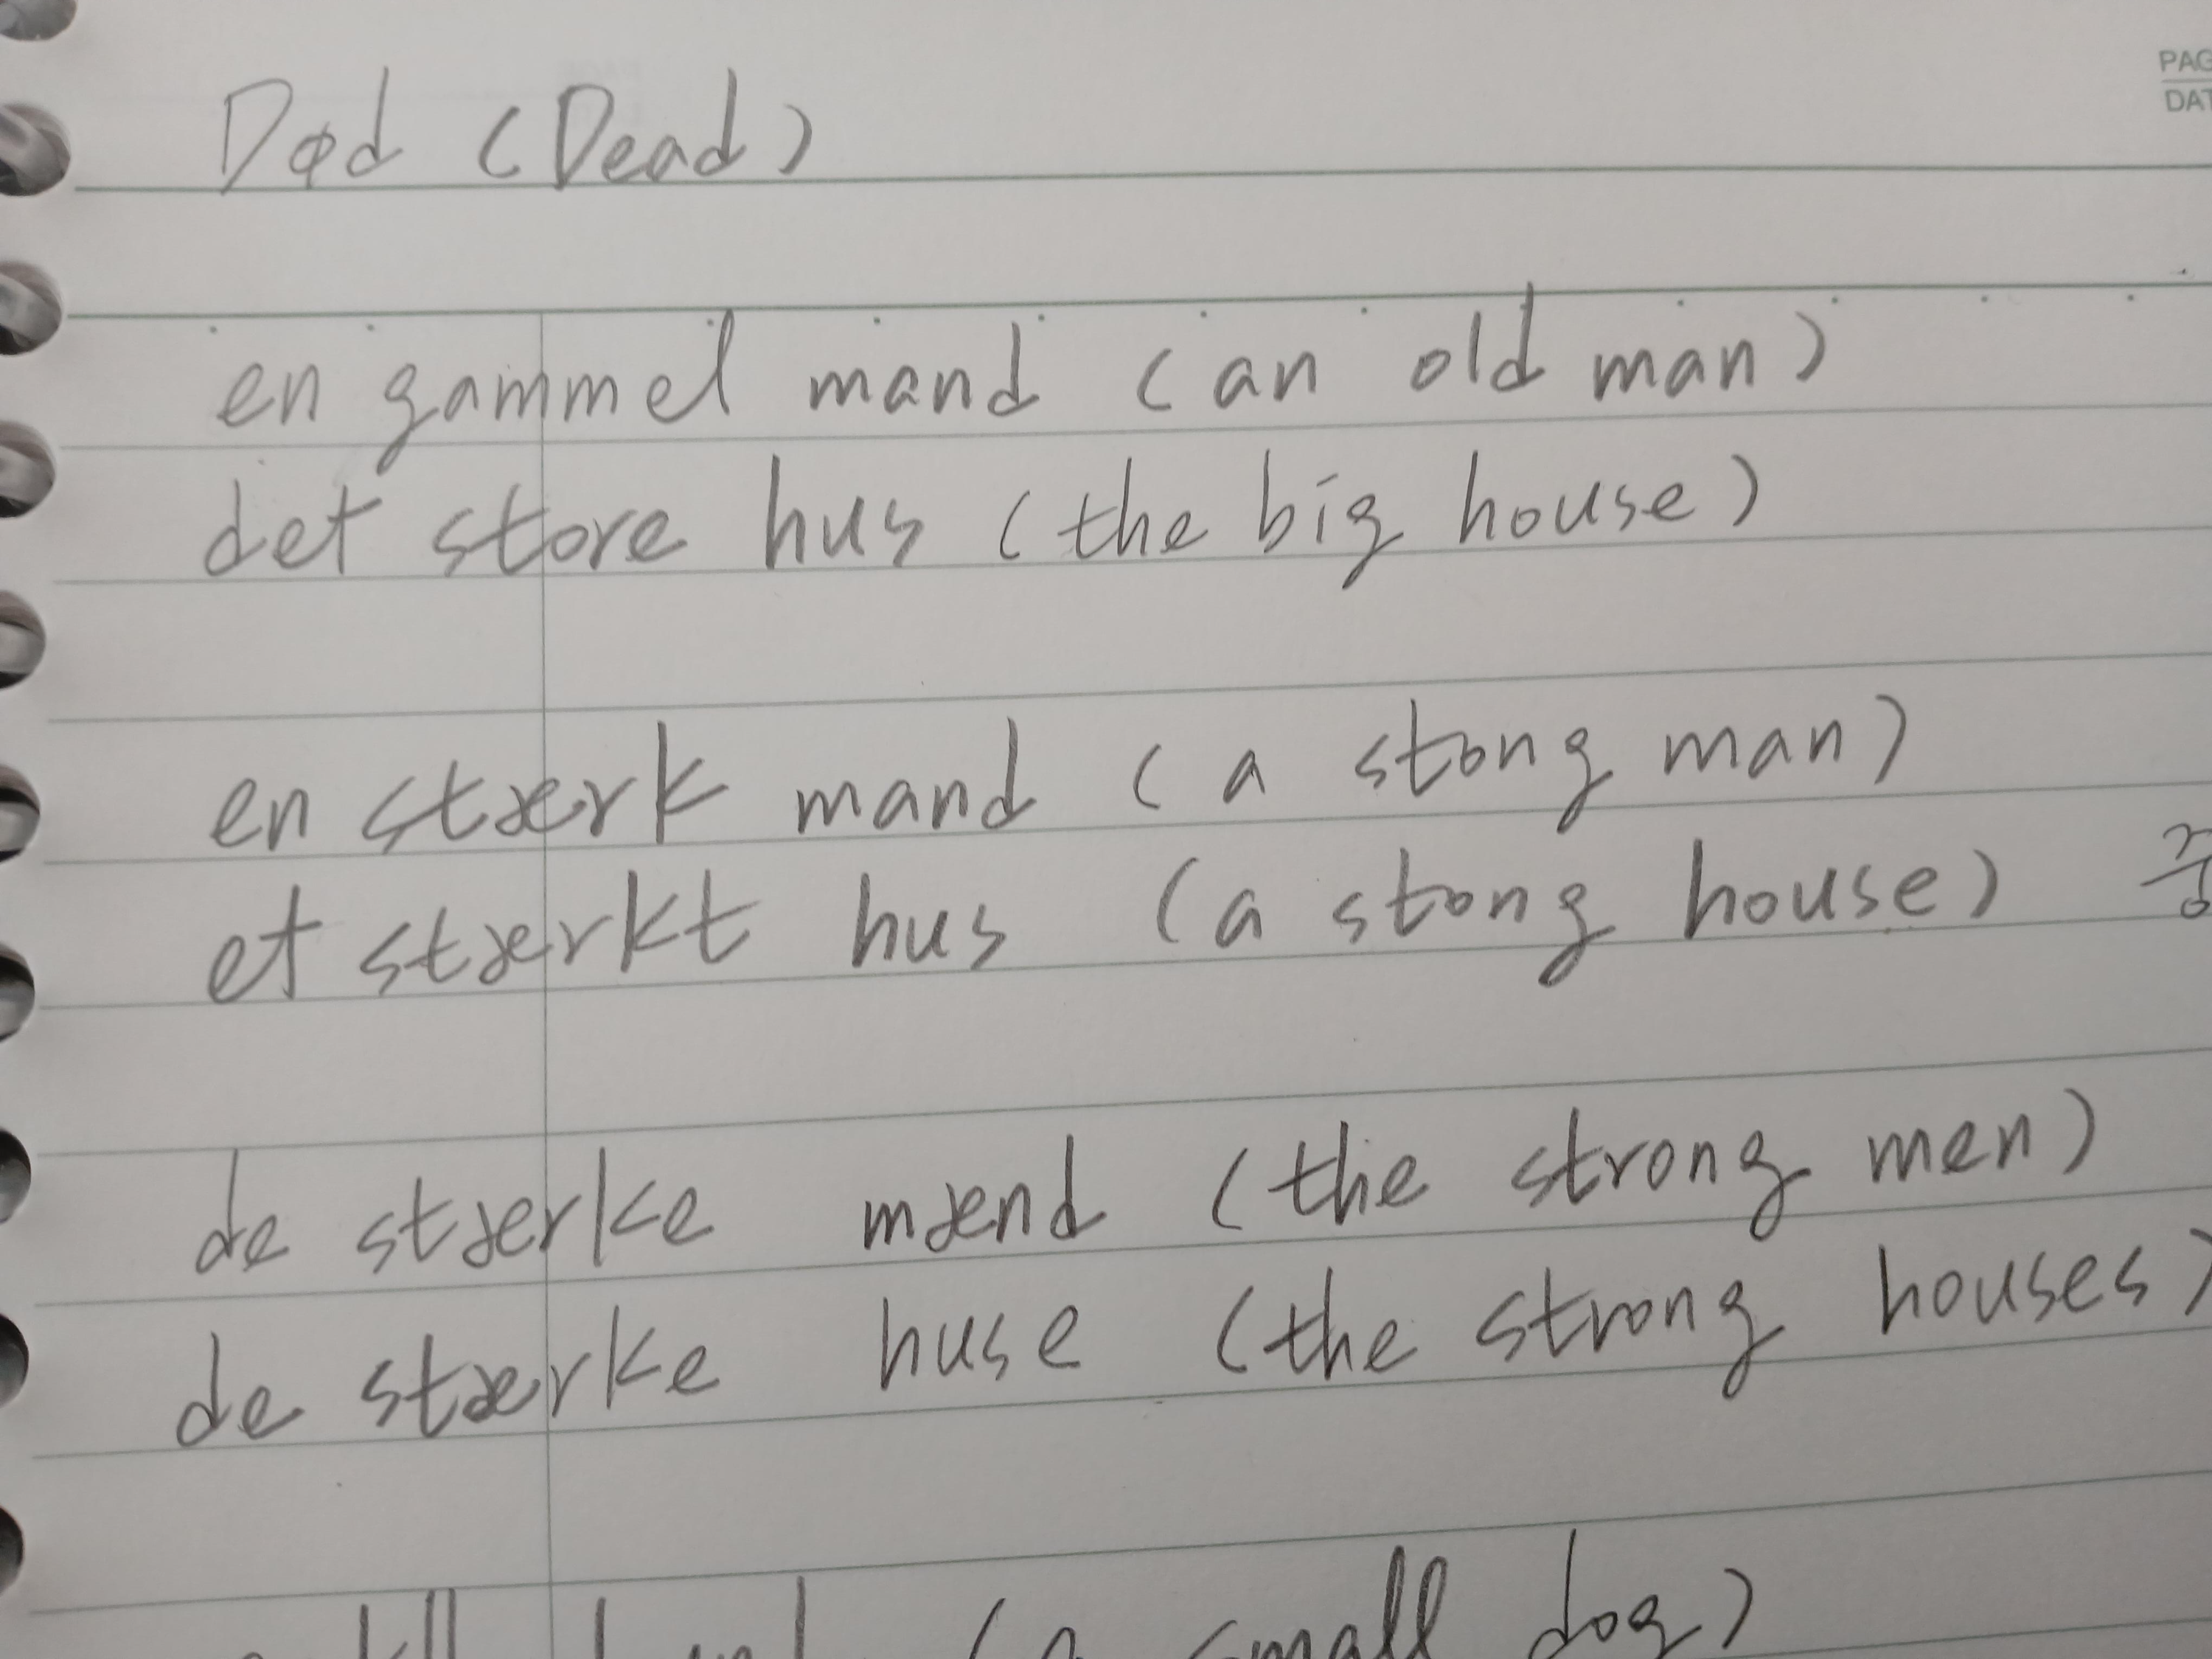 PAG
DAT
Død (Dead)
en gammel mand (an old man)
det store hus (the big house)
en stærk mand (a stong man)
et stærkt hus (a stong house) 중
de stærke mænd (the strong men)
de stærke huse (the strong houses)
(a small dog)